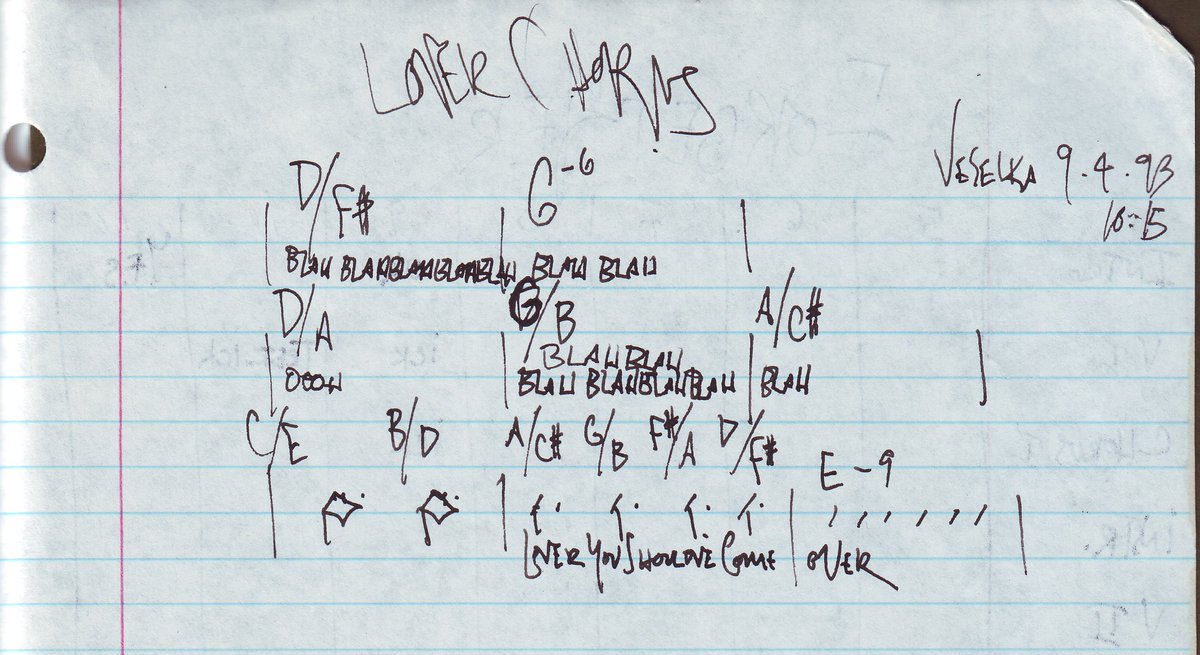 LOVER CHORDS
VESELKA 9.4.93
10:15
D/F# G-6
BLAH BLAH BLAH BLAH BLAH BLAH BLAH
D/A G/B A/C#
BLAH BLAH
OOOH BLAH BLAH BLAH BLAH BLAH
C/E B/D A/C# G/B F#/A D/F#
E-9
LOVER YOU SHOULDVE COME OVER
INTRO
CHORUS
V II